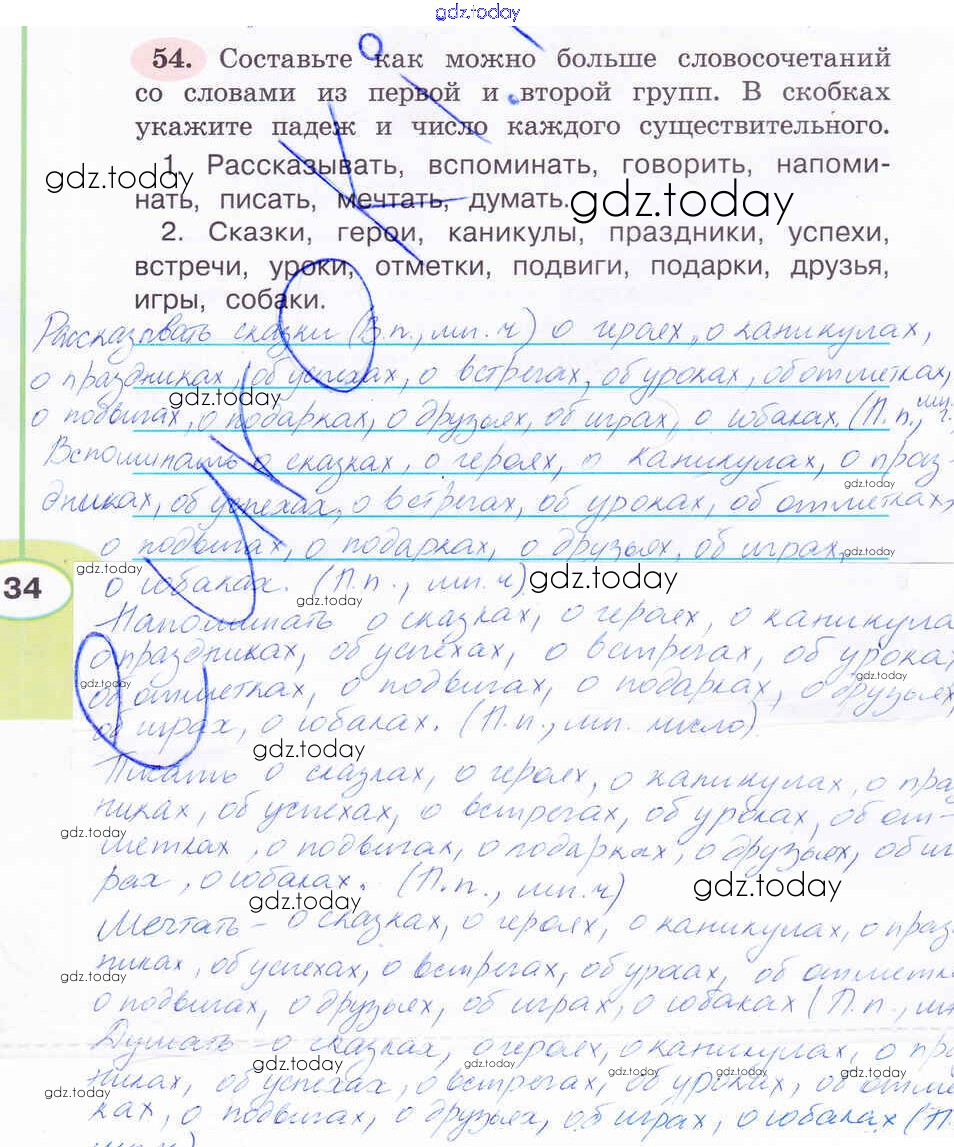 gdz.today
54. Составьте как можно больше словосочетаний
со словами из первой и второй групп. В скобках
укажите падеж и число каждого существительного.
1. Рассказывать, вспоминать, говорить, напоми-
gdz.today
нать, писать, мечтать, думать.
gdz.today
2. Сказки, герои, каникулы, праздники, успехи,
встречи, уроки, отметки, подвиги, подарки, друзья,
игры, собаки.
Рассказывать сказки (В.п., мн.ч) о героях, о каникулах,
о праздниках, об успехах, о встречах, об уроках, об отметках,
gdz.today
о подвигах, о подарках, о друзьях, об играх, о собаках. (П.п., мн.ч.
Вспоминать о сказках, о героях, о каникулах, о праз-
gdz.today
дниках, об успехах, о встречах, об уроках, об отметках,
о подвигах, о подарках, о друзьях, об играх,
gdz.today
gdz.today
34
о собаках. (П.п., мн.ч)
gdz.today
gdz.today
Напоминать о сказках, о героях, о каникула
о праздниках, об успехах, о встречах, об уроках
gdz.today
gdz.today
об отметках, о подвигах, о подарках, о друзьях,
об играх, о собаках. (П.п., мн. число)
gdz.today
Писать о сказках, о героях, о каникулах, о пра
никах, об успехах, о встречах, об уроках, об от-
gdz.today
метках, о подвигах, о подарках, о друзьях, об иг
рах, о собаках. (П.п., мн.ч)
gdz.today
gdz.today
Мечтать - о сказках, о героях, о каникулах, о праз-
никах, об успехах, о встречах, об уроках, об отметк
gdz.today
gdz.today
о подвигах, о друзьях, об играх, о собаках (П.п., мн
Думать - о сказках, о героях, о каникулах, о пра
gdz.today
gdz.today
gdz.today
gdz.today
никах, об успехах, о встречах, об уроках, об отме
gdz.today
gdz.today
ках, о подвигах, о друзьях, об играх, о собаках (П.
мн.ч)